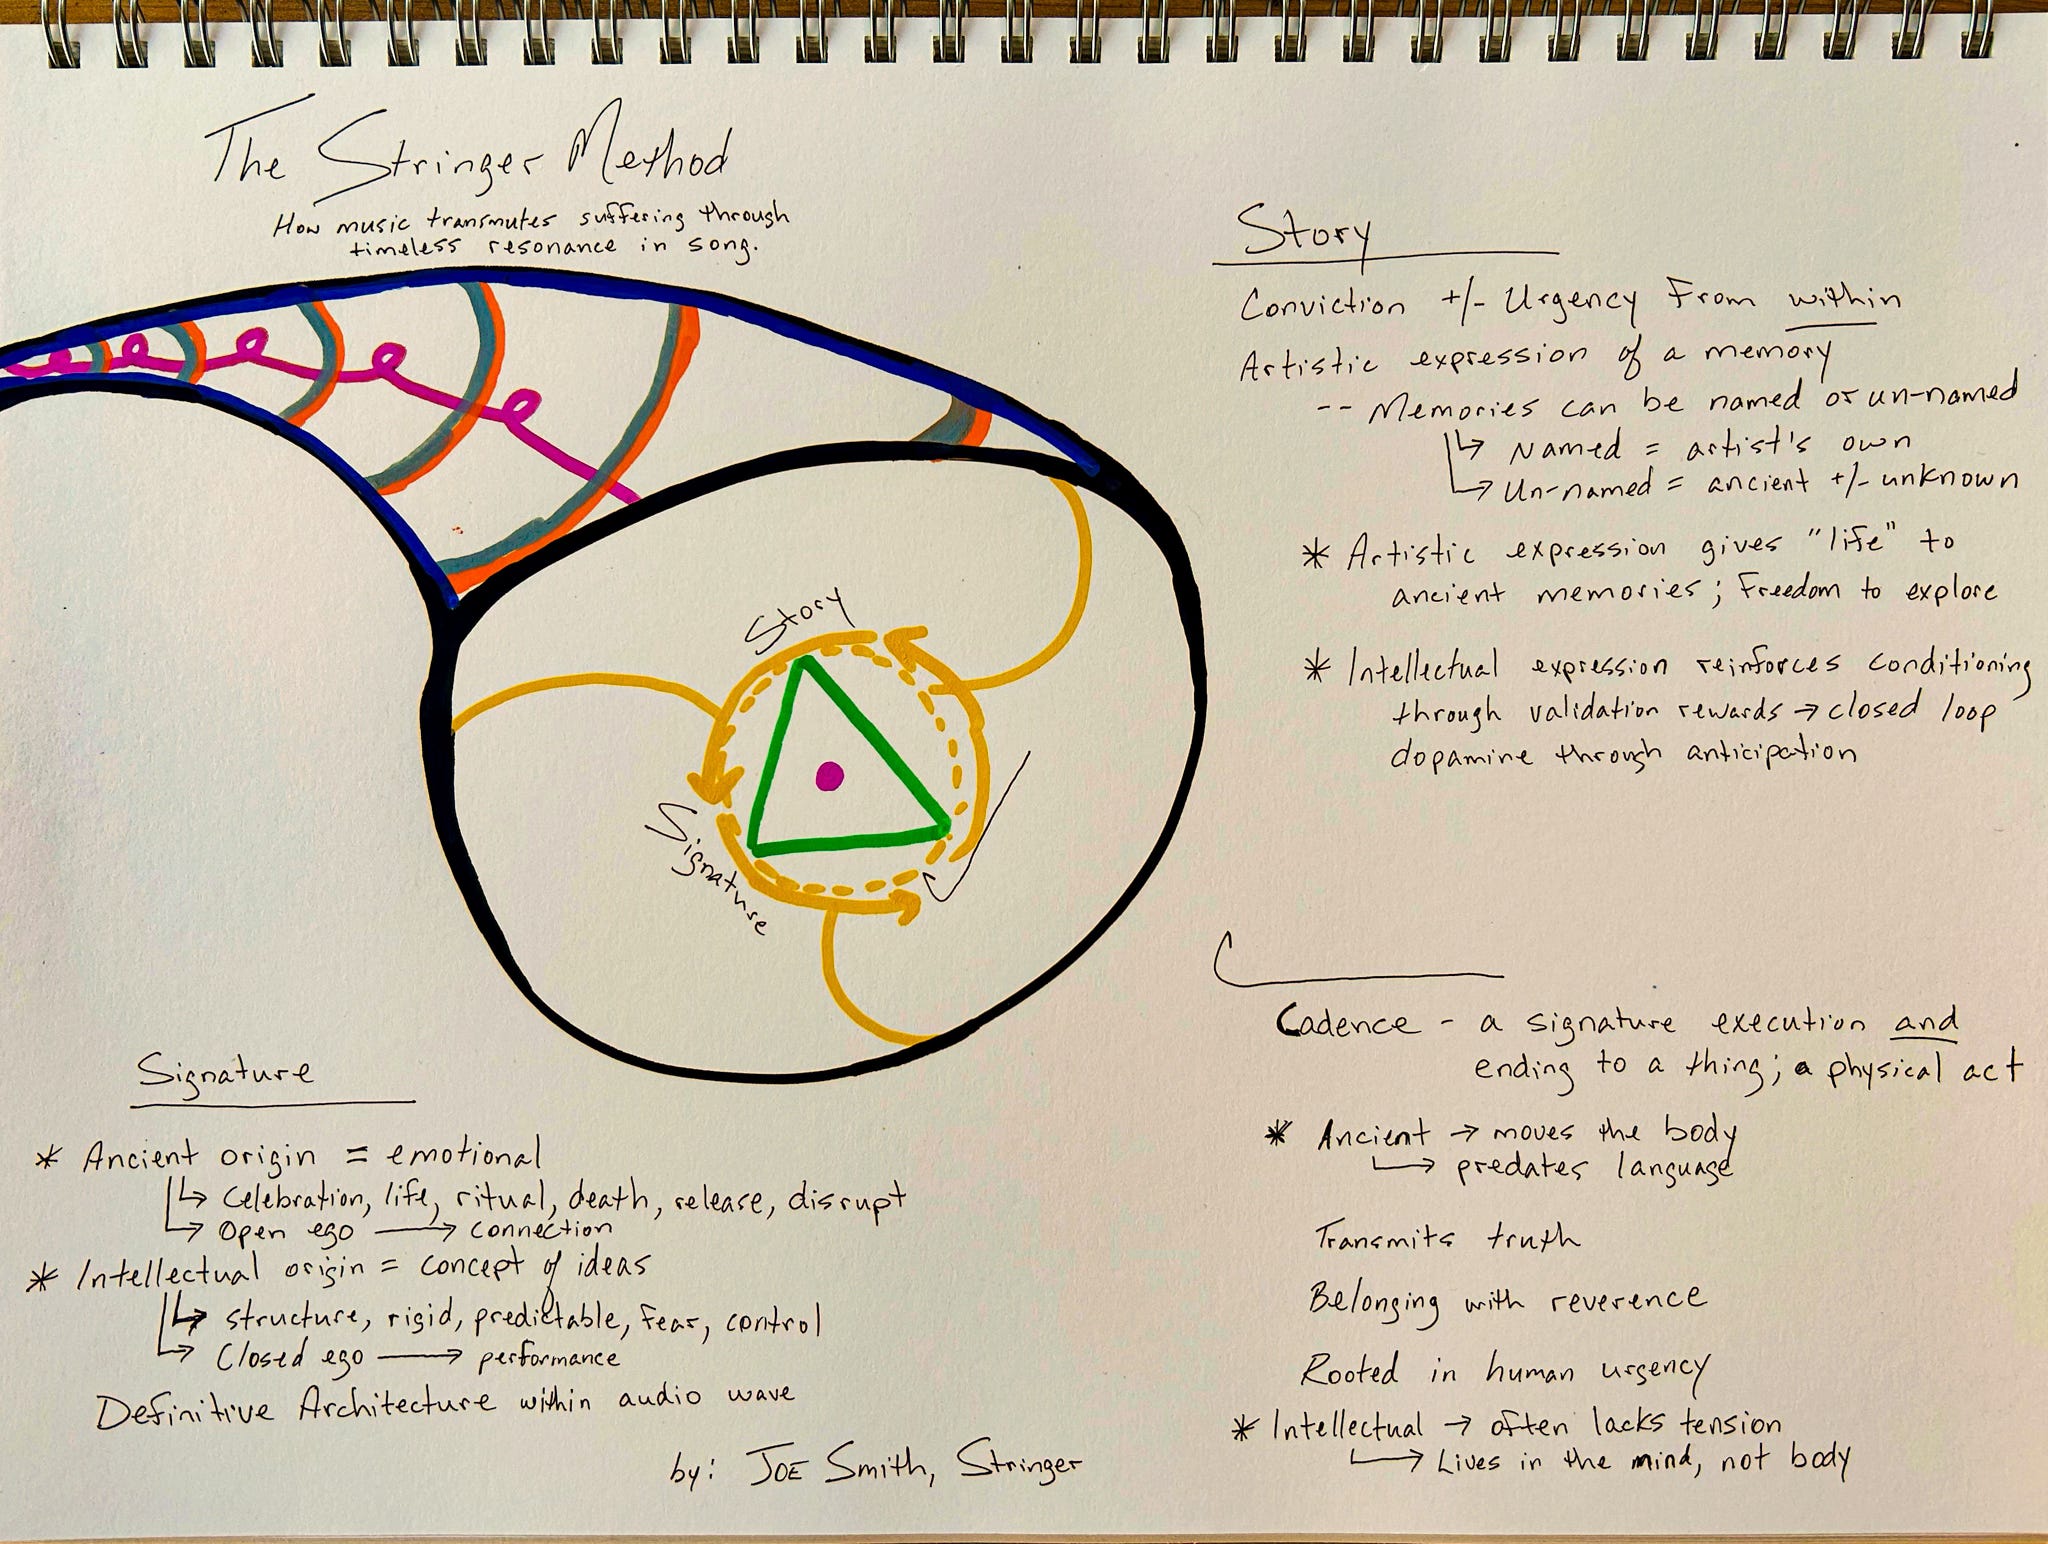 The Stringer Method
How music transmutes suffering through
timeless resonance in song.
Story
Signature
Story
Conviction +/- Urgency From within
Artistic expression of a memory
-- Memories can be named or un-named
↳ Named = artist's own
↳ Un-named = ancient +/- unknown
* Artistic expression gives "life" to
ancient memories; Freedom to explore
* Intellectual expression reinforces conditioning
through validation rewards → closed loop
dopamine through anticipation
Cadence - a signature execution and
ending to a thing; a physical act
* Ancient → moves the body
↳ predates language
Transmits truth
Belonging with reverence
Rooted in human urgency
* Intellectual → often lacks tension
↳ Lives in the mind, not body
Signature
* Ancient origin = emotional
↳ Celebration, life, ritual, death, release, disrupt
↳ Open ego → connection
* Intellectual origin = concept of ideas
↳ structure, rigid, predictable, fear, control
↳ Closed ego → performance
Definitive Architecture within audio wave
by: JOE Smith, Stringer